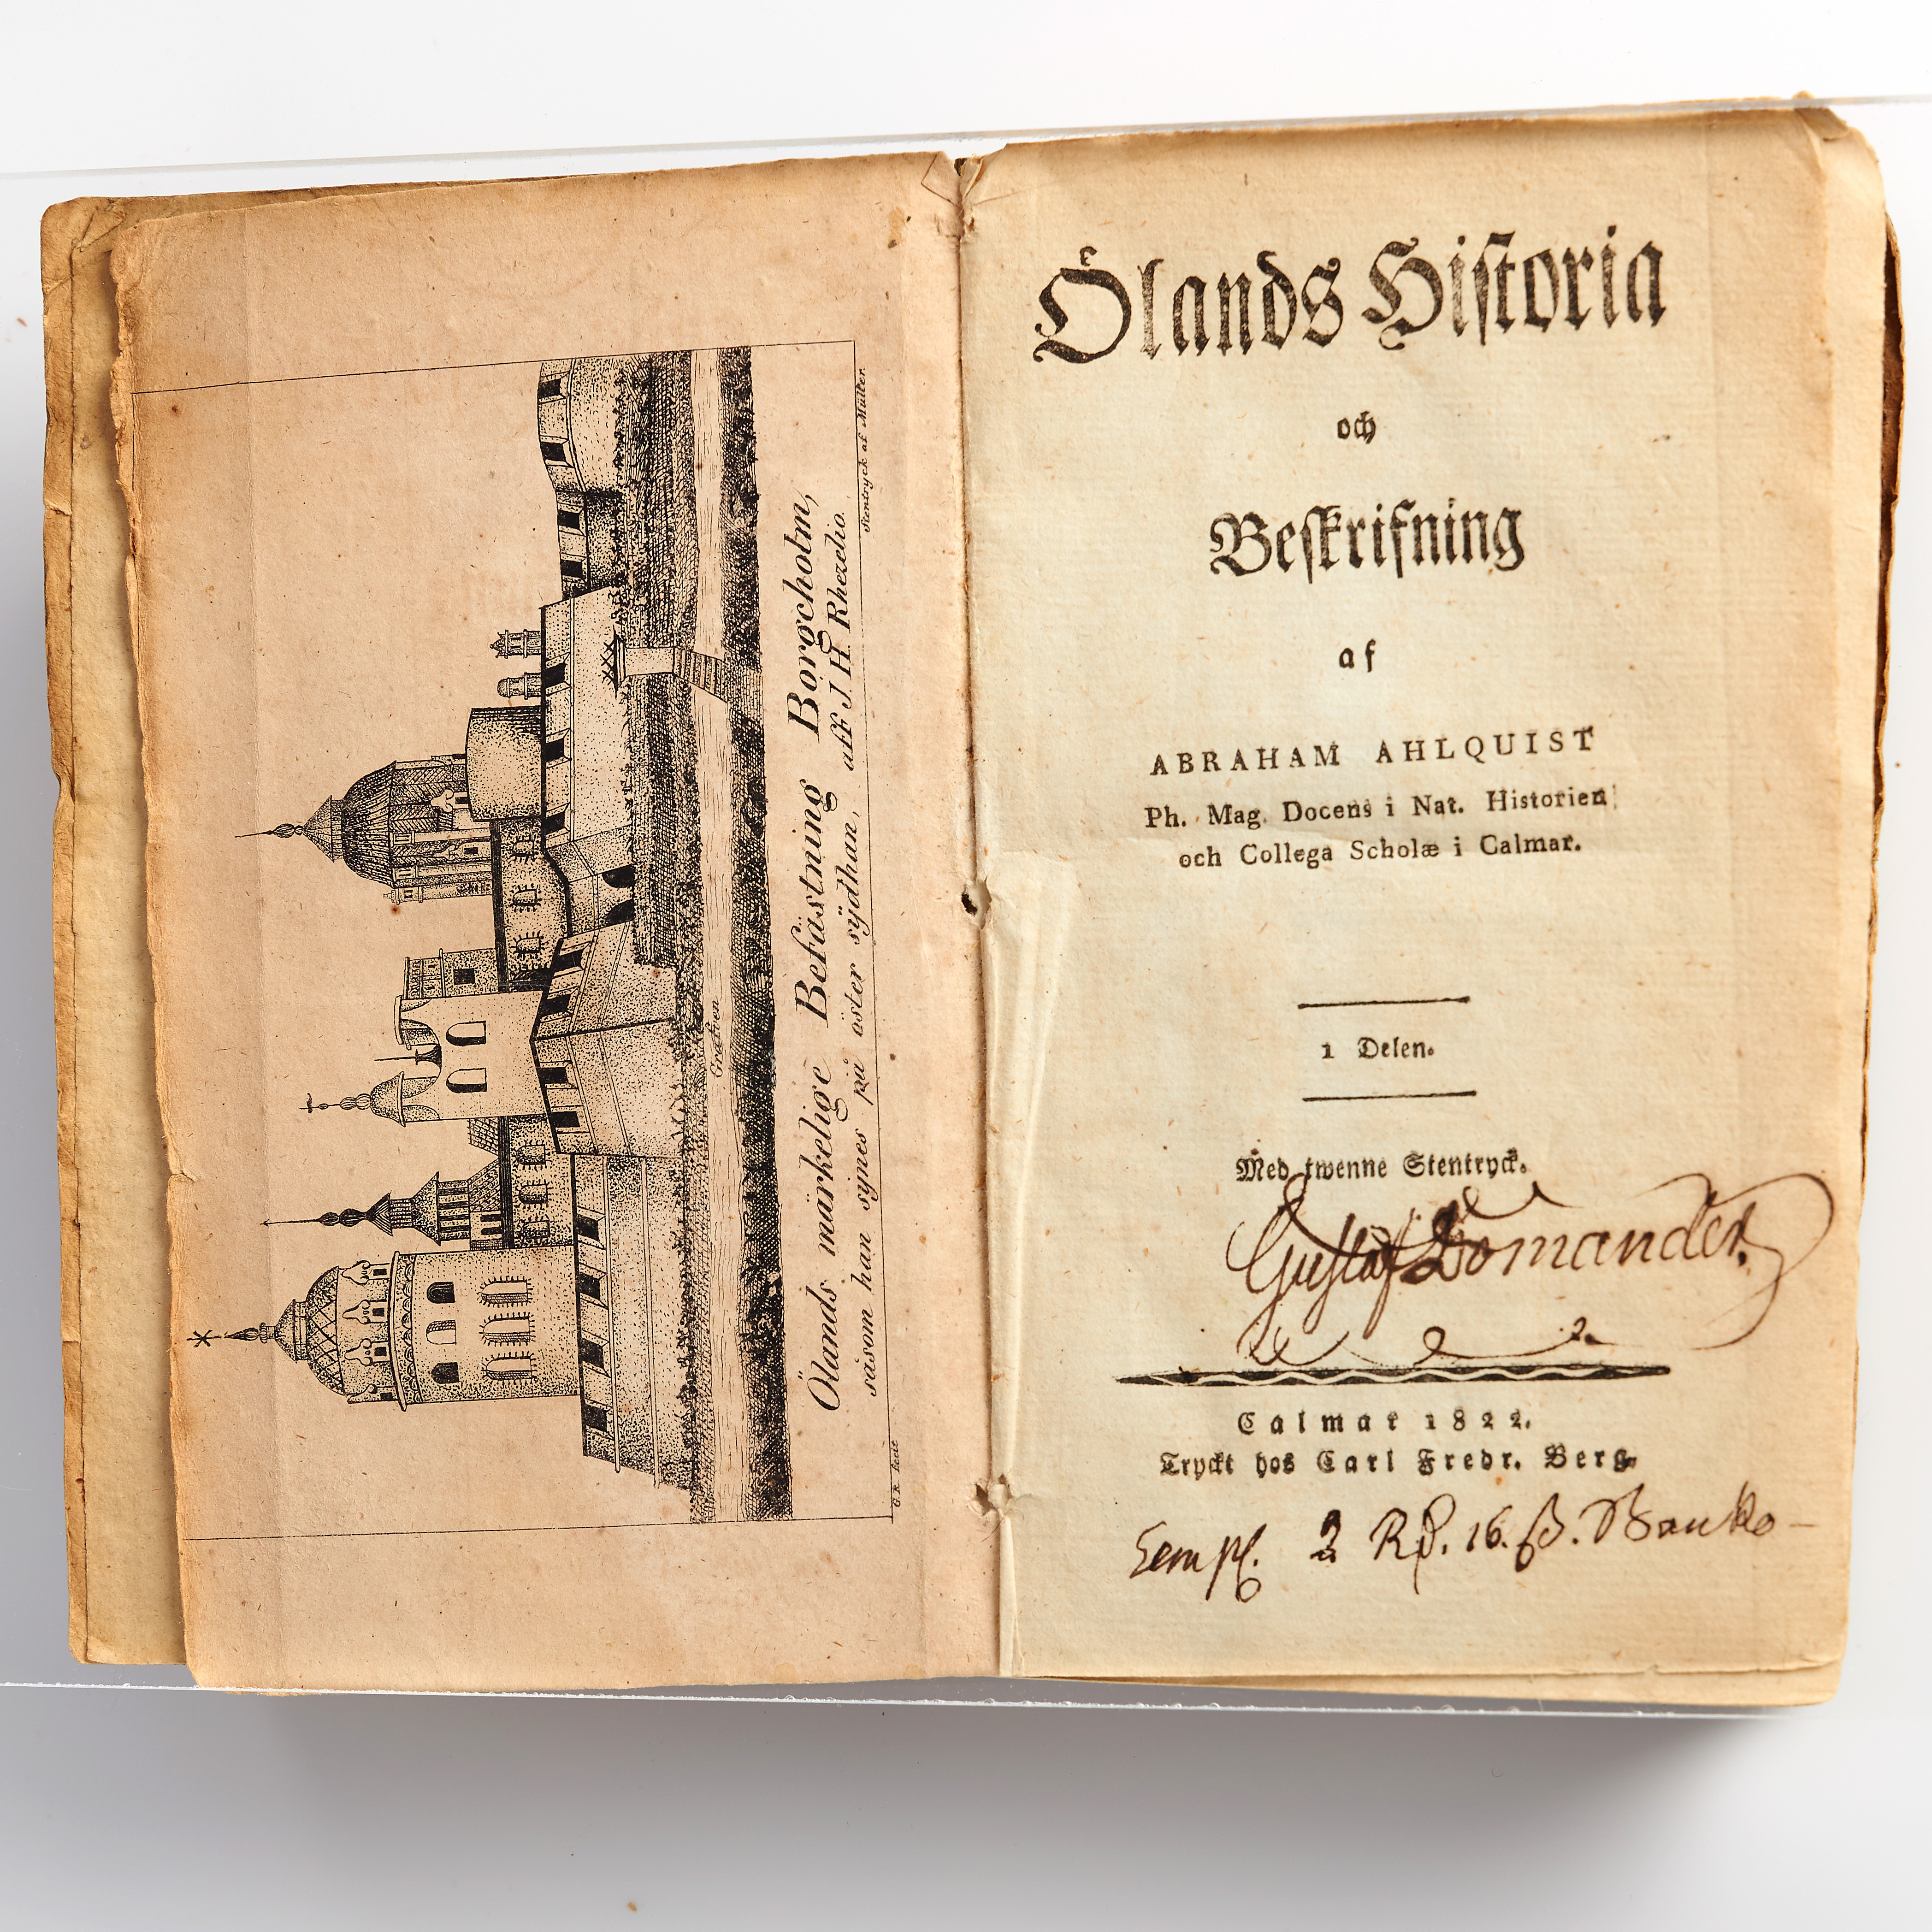 Grafven
Ölands märkelige Befästning Borgcholm,
såsom han sÿnes på öster sÿdhan, aff J H. Rhezelio.
G. R. fecit
Stentryck af Müller.
Ölands Historia
och
Beskrifning
af
ABRAHAM AHLQUIST
Ph. Mag. Docens i Nat. Historien
och Collega Scholæ i Calmar.
1 Delen.
Med twenne Stentryck.
Gustaf Bomander.
Calmar 1822.
Tryckt hos Carl Fredr. Berg.
2 Rd. 16. ß. Banko –